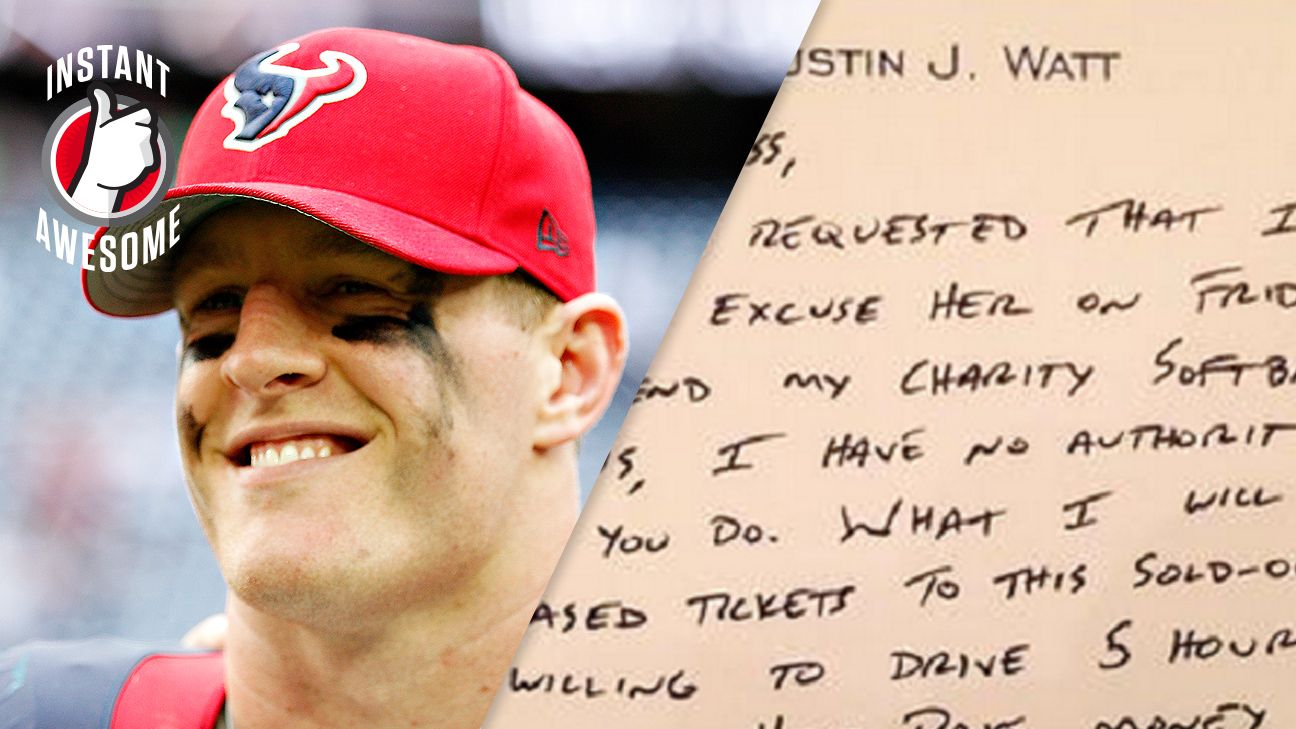 INSTANT
AWESOME
USTIN J. WATT
SS,
REQUESTED THAT I
EXCUSE HER ON FRID
END MY CHARITY SOFTBA
S, I HAVE NO AUTHORIT
YOU DO. WHAT I WILL
ASED TICKETS TO THIS SOLD-O
WILLING TO DRIVE 5 HOUR
MONEY